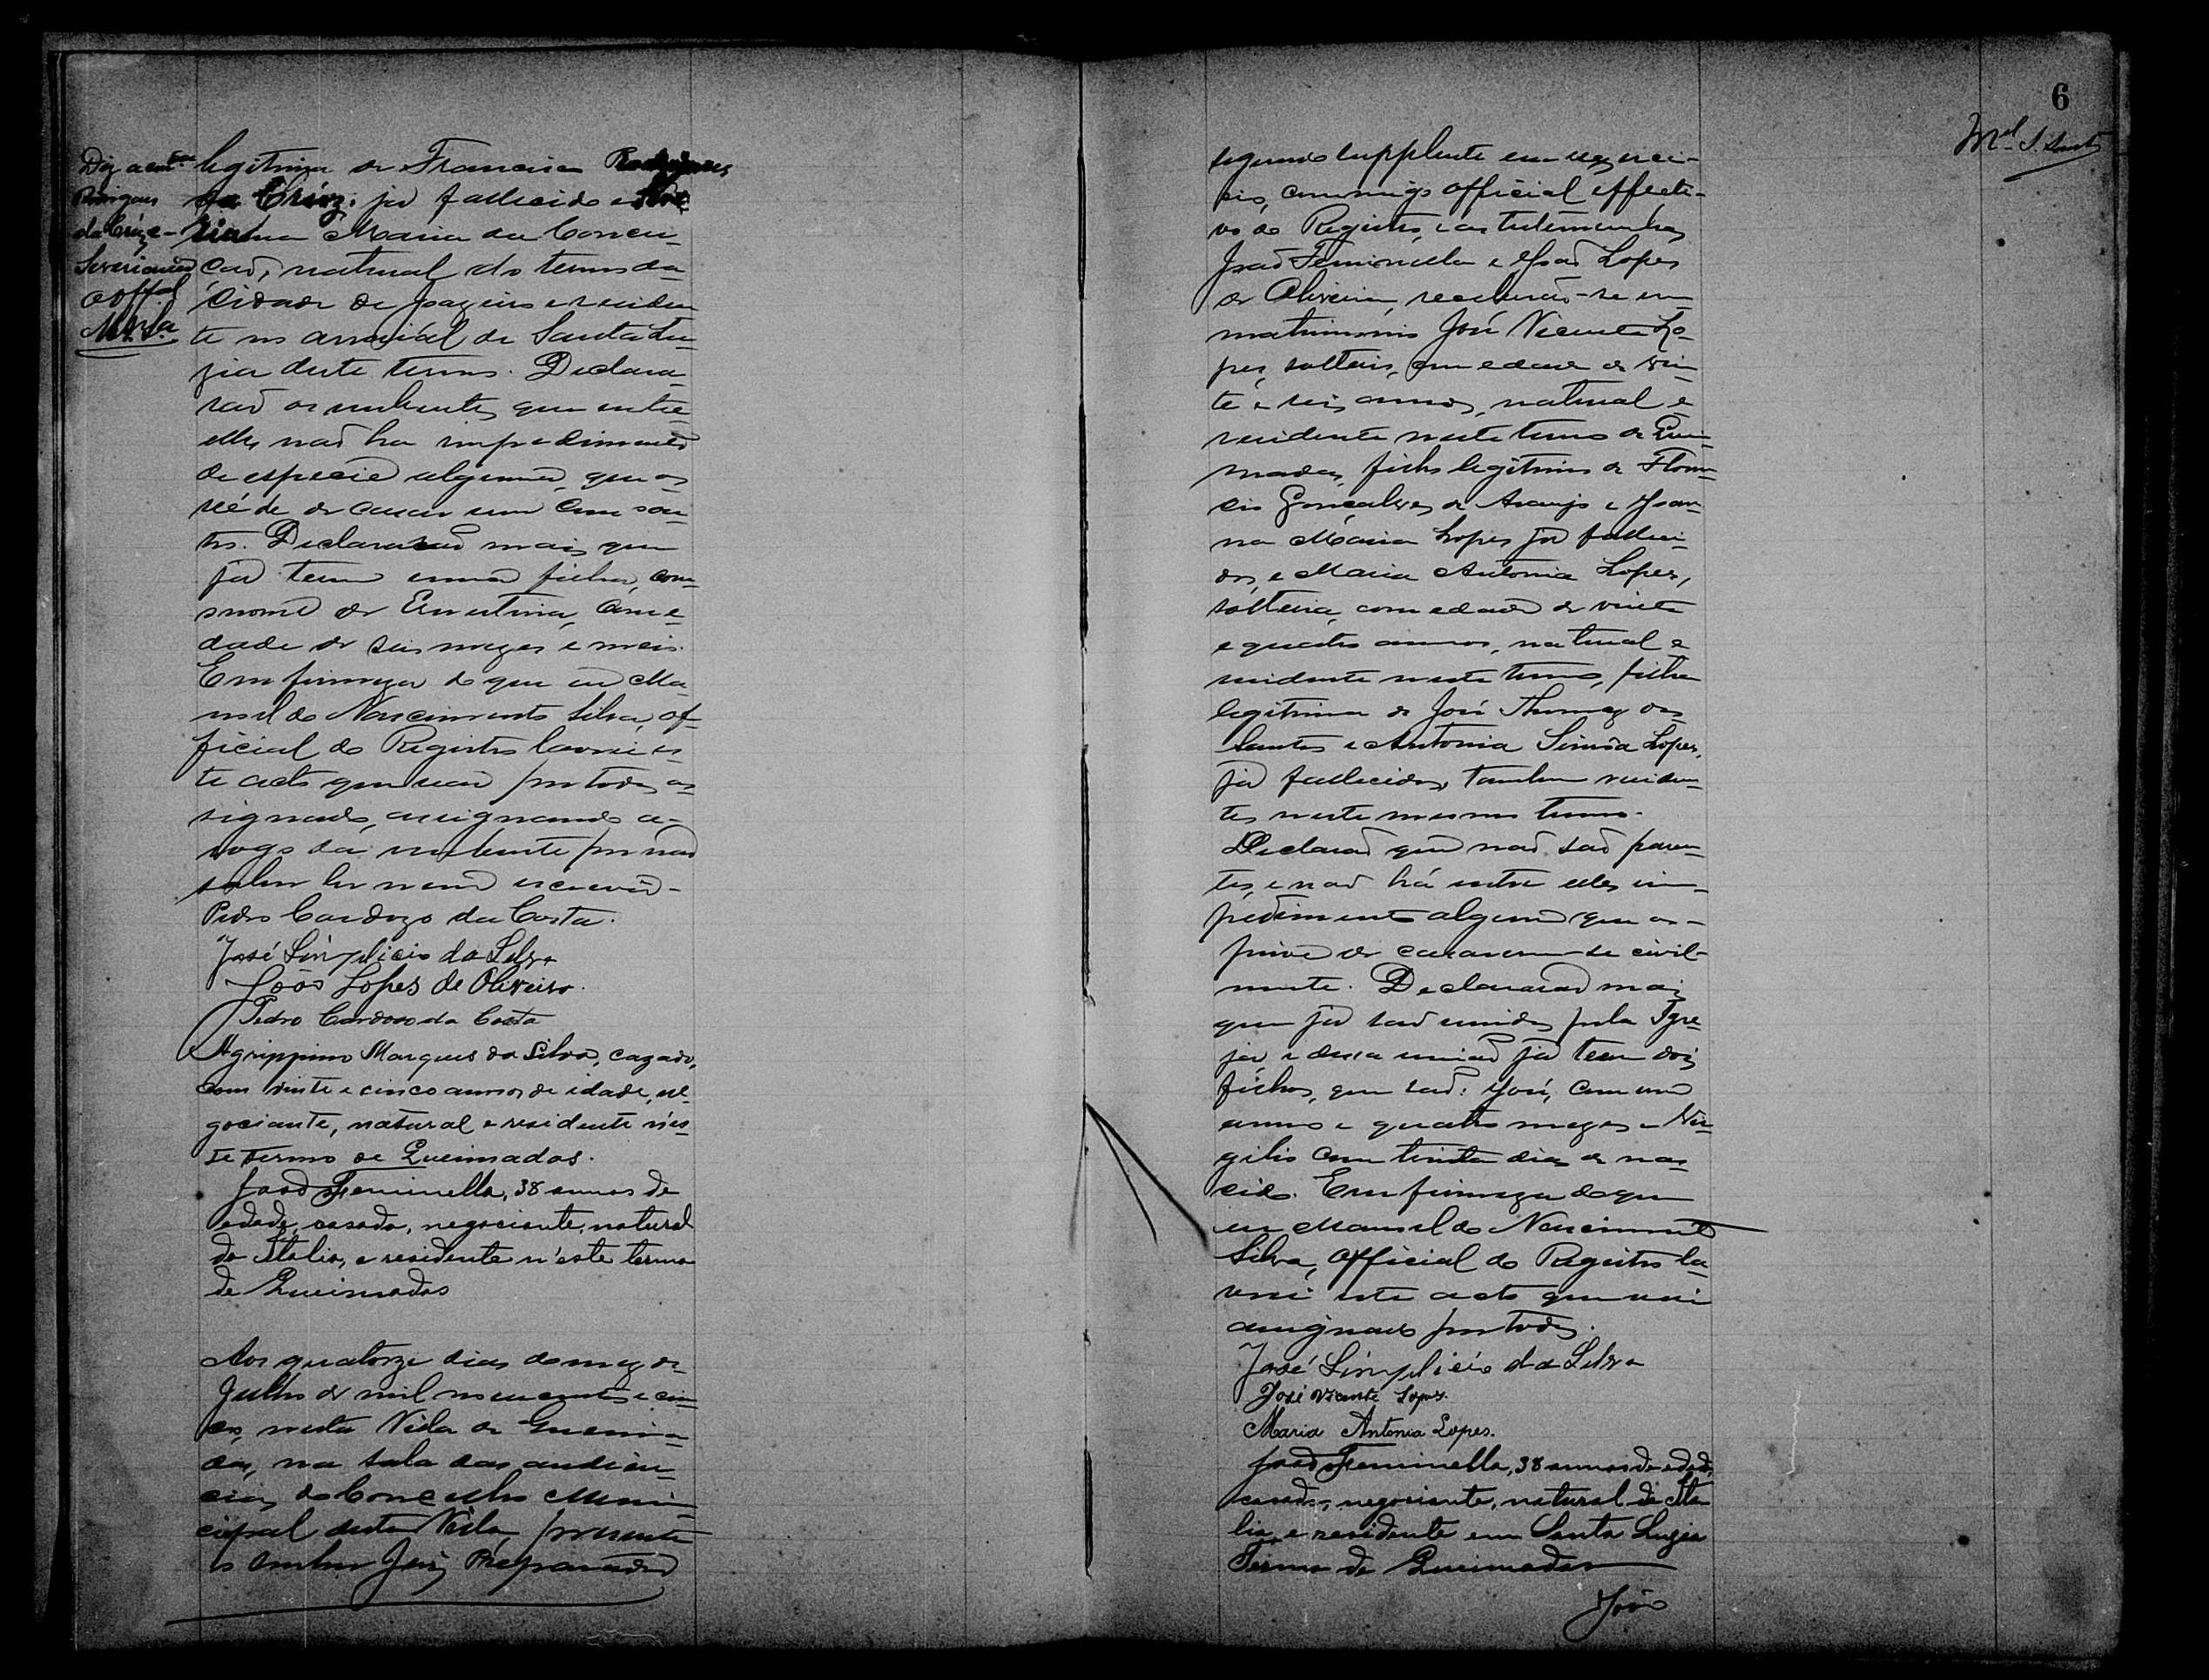 Digo a emt.da
Rodrigues
da Cruz e
Severiana
O Off.al
M. N. Sa.
legitima de Francisco Rodrigues
da Cruz, já fallecido e
Maria da Concei-
ção, natural do termo da
Cidade de Joazeiro e residen-
te no arraial de Santa Lu-
zia deste termo. Declara-
rão os nubentes que entre
elles não ha impedimento
de especie alguma, que os
véde de casar um com ou-
tro. Declararão mais que
já tem uma filha, com
o nome de Ernestina, com e-
dade de seis mezes e meio.
Em firmeza do que eu Ma-
noel do Nascimento Silva, of-
ficial do Registro lavrei es-
te acto que vai por todos as-
signado, assignando a
rogo da nubente por não
saber ler nem escrever
Pedro Cardozo da Costa.
José Simplicio da Silva
João Lopes de Oliveira.
Pedro Cardoso da Costa
Agrippino Marques da Silva, cazado,
com vinte e cinco annos de idade, ne-
gociante, natural e residente n'es-
te termo de Queimadas.
João Feminella, 38 annos de
edade, casado, negociante, natural
da Italia, e residente n'este termo
de Queimadas
Aos quatorze dias do mez de
Julho de mil novecentos e cin-
co, nesta Villa de Queima-
das, na sala das audien-
cias do Concelho Muni-
cipal desta Villa, presente
o senhor Juiz Preparador
6
M.el S. Santos
segundo supplente em exerci-
cio, commigo official effecti-
vo do Registro, e as testemunhas
João Feminella e João Lopes
de Oliveira, receberão-se em
matrimonio José Vicente Lo-
pes, solteiro, com edade de vin-
te e seis annos, natural e
residente neste termo de Quei-
madas, filho legitimo de Floren-
cio Gonçalves de Araujo e Joan-
na Maria Lopes já falleci-
dos, e Maria Antonia Lopes,
solteira, com edade de vinte
e quatro annos, natural e
residente neste termo, filha
legitima de José Thomaz dos
Santos e Antonia Simôa Lopes,
já fallecidos, tambem residen-
tes neste mesmo termo.
Declarão que não são paren-
tes, e não há entre elles im-
pedimento algum que os
prive de casarem-se civil-
mente. Declararão mais
que já são unidos pela Igre-
ja e dessa união já teem dois
filhos, que são: José, com um
anno e quatro mezes e Vir-
gilio com trinta dias de nas-
cido. Em firmeza do que
eu Manoel do Nascimento
Silva, Official do Registro la-
vrei este acto que vai
assignado por todos.
José Simplicio da Silva
José Vicente Lopes.
Maria Antonia Lopes.
João Feminella, 38 annos de edade,
casado, negociante, natural da Ita-
lia, e residente em Santa Luzia
Termo de Queimadas
João